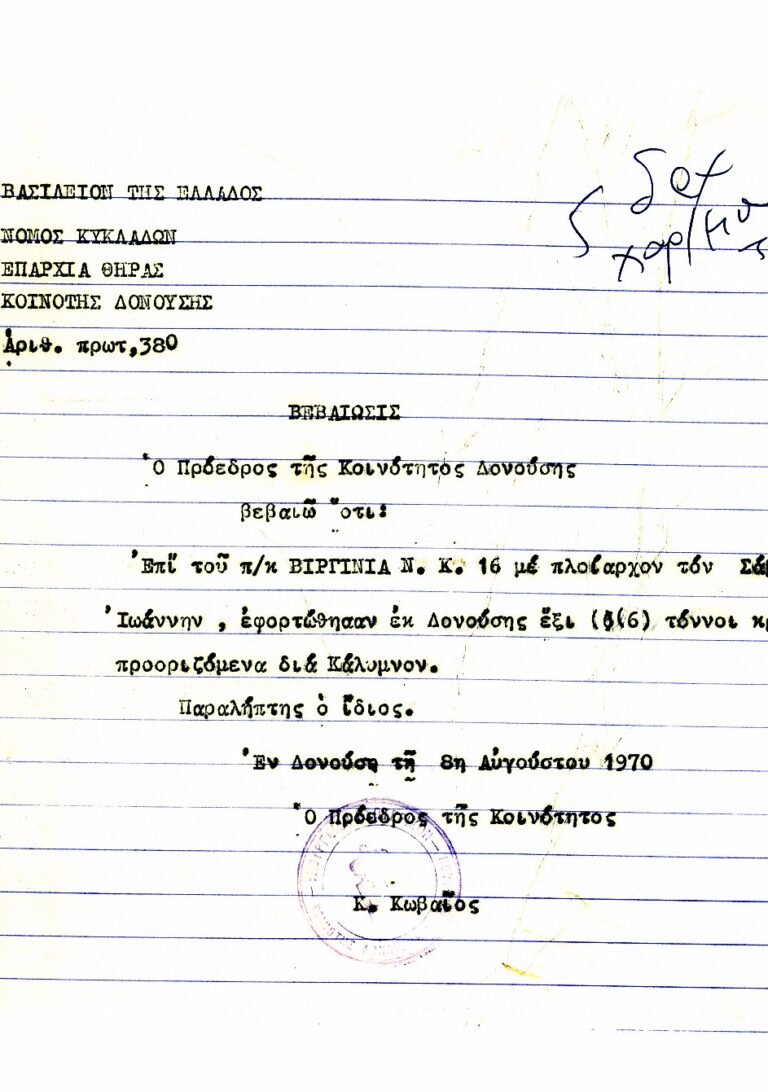 δρχ
χαρ/μο
ΒΑΣΙΛΕΙΟΝ ΤΗΣ ΕΛΛΑΔΟΣ
ΝΟΜΟΣ ΚΥΚΛΑΔΩΝ
ΕΠΑΡΧΙΑ ΘΗΡΑΣ
ΚΟΙΝΟΤΗΣ ΔΟΝΟΥΣΗΣ
Ἀριθ. πρωτ,380
ΒΕΒΑΙΩΣΙΣ
Ὁ Πρόεδρος τῆς Κοινότητος Δονούσης
βεβαιῶ ὅτι:
Ἐπί τοῦ π/κ ΒΙΡΓΙΝΙΑ Ν. Κ. 16 μέ πλοίαρχον τόν
Ἰωάννην , ἐφορτώθηααν ἐκ Δονούσης ἕξι (6(6) τόννοι
προοριζόμενα διά Κάλυμνον.
Παραλήπτης ὁ ἴδιος.
Ἐν Δονούσῃ τῇ 8η Αὐγούστου 1970
Ὁ Πρόεδρος τῆς Κοινότητος
Κ. Κωβαῖος